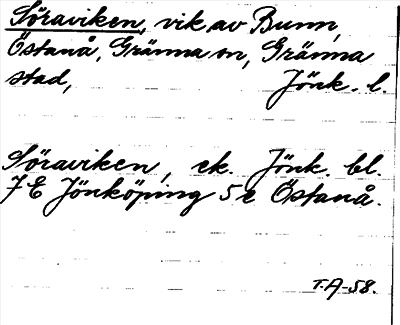 Söraviken, vik av Bunn,
Östanå, Gränna sn, Gränna
stad, Jönk. l.
Söraviken, ek. Jönk. bl.
7 E Jönköping 5 e Östanå.
T.A-58.